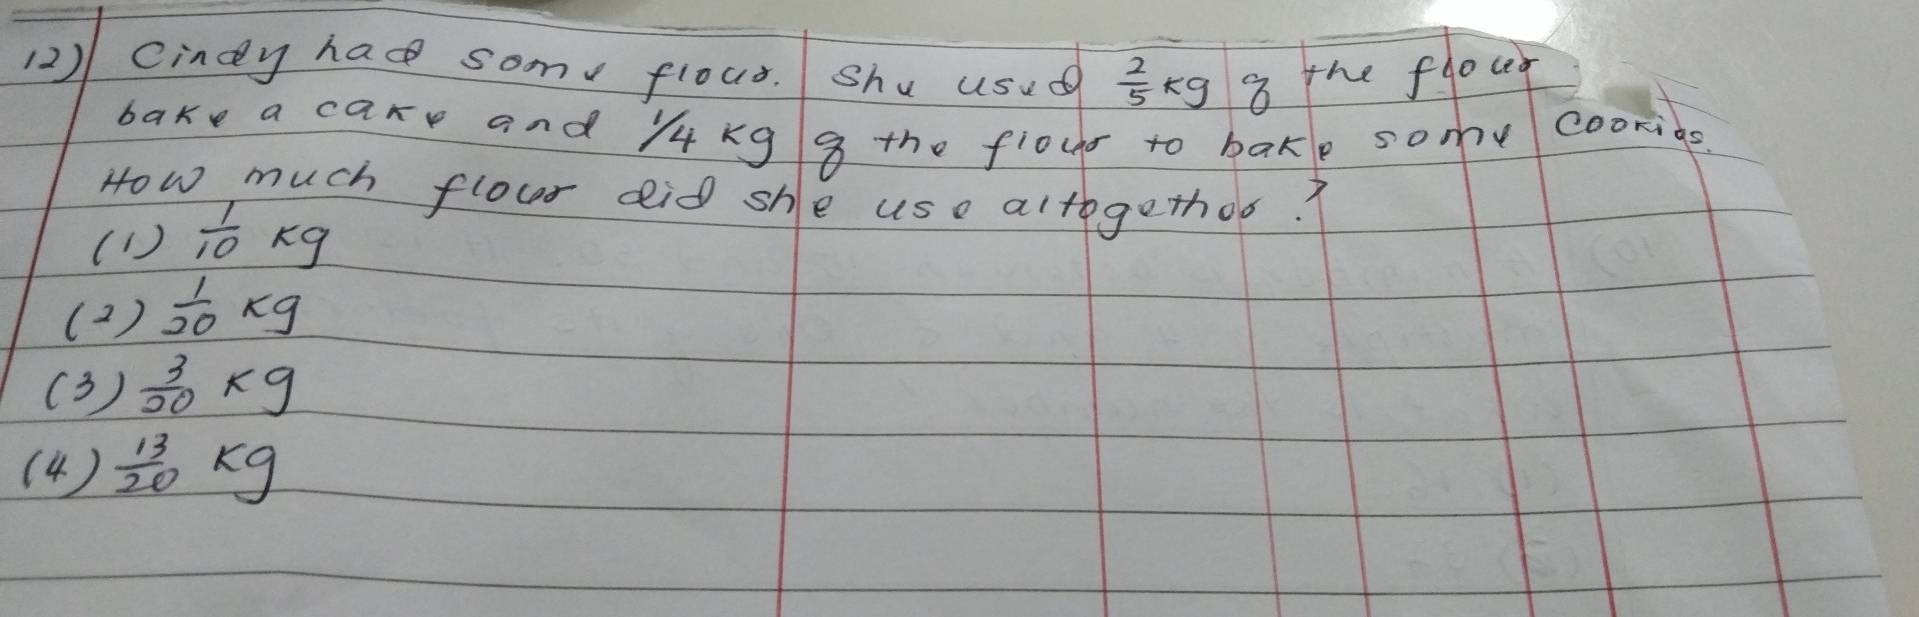 12) Cindy had some flour. She used 2/5 kg of the flour
bake a cake and 1/4 kg of the flour to bake some cookies.
How much flour did she use altogether?
(1) 1/10 kg
(2) 1/20 kg
(3) 3/20 kg
(4) 13/20 kg